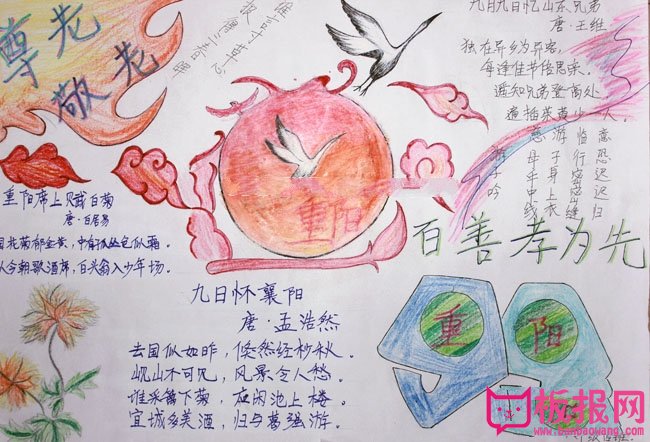 尊老
敬老
谁言寸草心
报得三春晖
九月九日忆山东兄弟
唐·王维
独在异乡为异客,
每逢佳节倍思亲。
遥知兄弟登高处
遍插茱萸少一人。
游子吟
慈母手中线
游子身上衣
临行密密缝
意恐迟迟归
重阳席上赋白菊
唐·白居易
园花菊郁金黄,中有孤丛色似霜。
从今朝歌酒席,白头翁入少年场。
重阳
百善孝为先
九日怀襄阳
唐·孟浩然
去国似如昨,倏然经杪秋。
岘山不可见,风景令人愁。
谁采篱下菊,应闲池上楼。
宜城多美酒,归与葛强游。
重
阳
板报网
www.banbaowang.com